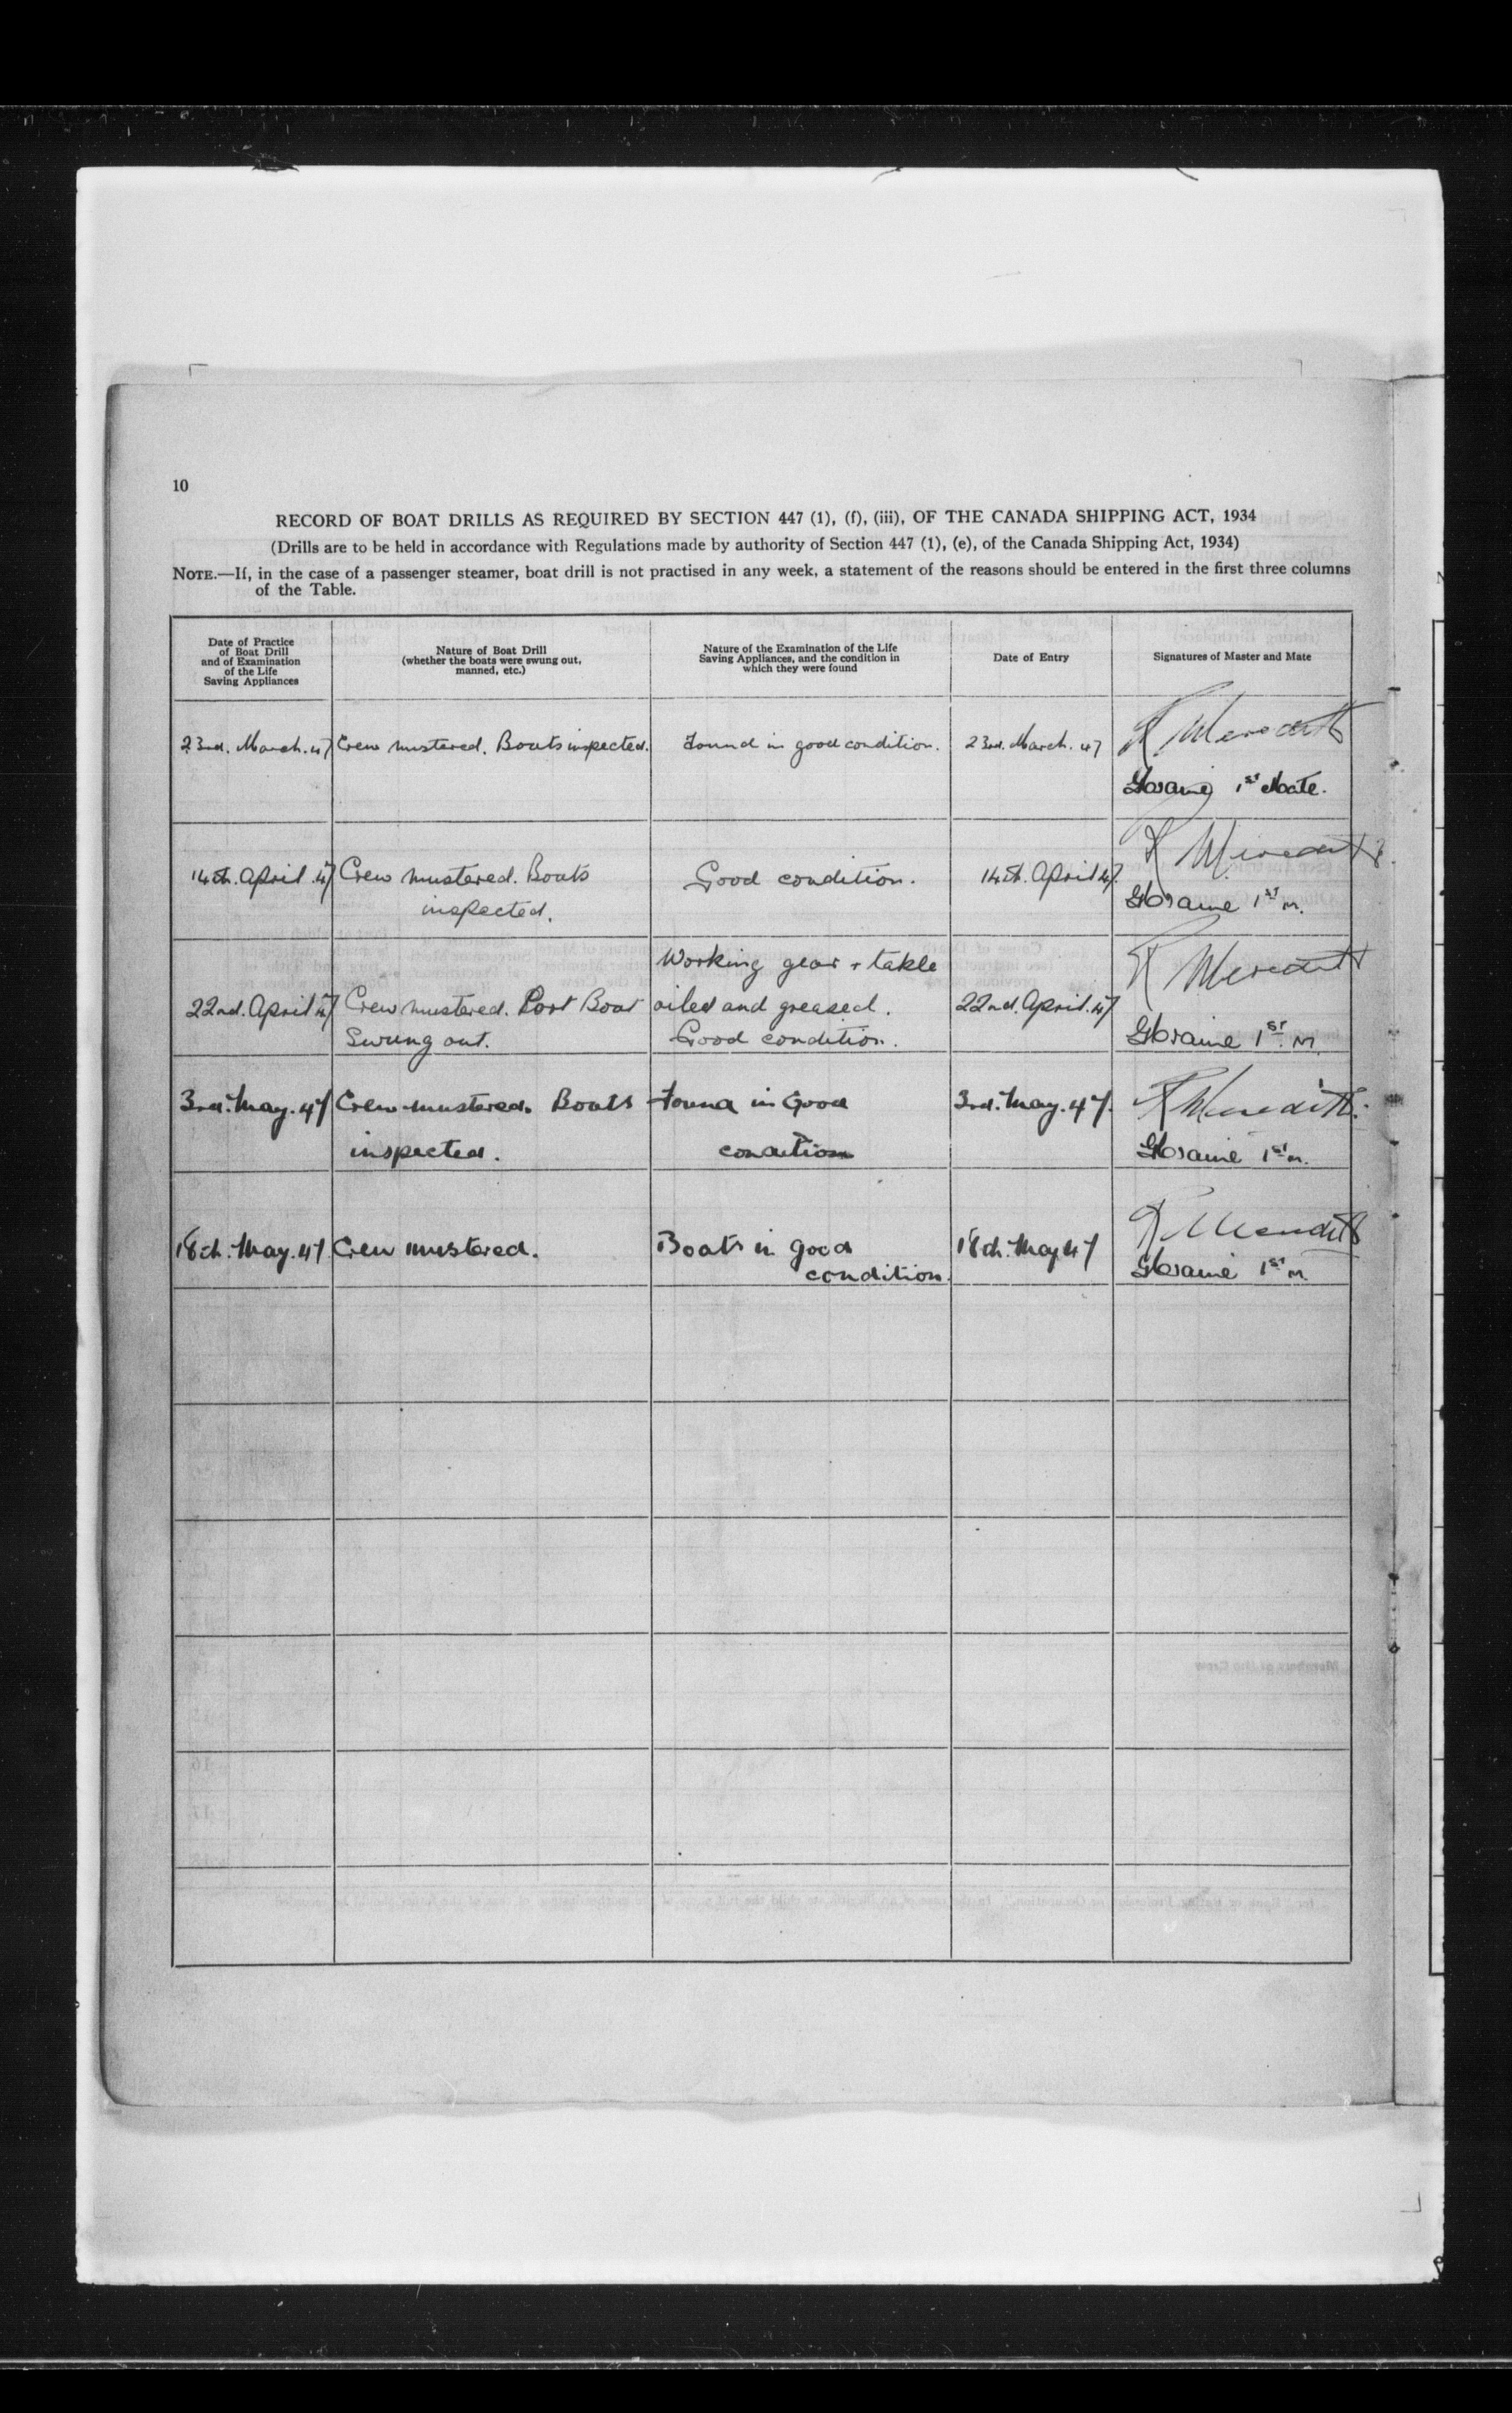 10
RECORD OF BOAT DRILLS AS REQUIRED BY SECTION 447 (1), (f), (iii), OF THE CANADA SHIPPING ACT, 1934
(Drills are to be held in accordance with Regulations made by authority of Section 447 (1), (e), of the Canada Shipping Act, 1934)
NOTE.—If, in the case of a passenger steamer, boat drill is not practised in any week, a statement of the reasons should be entered in the first three columns
of the Table.
Date of Practice
of Boat Drill
and of Examination
of the Life
Saving Appliances
Nature of Boat Drill
(whether the boats were swung out,
manned, etc.)
Nature of the Examination of the Life
Saving Appliances, and the condition in
which they were found
Date of Entry
Signatures of Master and Mate
23rd. March. 47
Crew mustered. Boats inspected.
Found in good condition.
23rd. March. 47
R Meredith
1st Mate.
14th. April. 47
Crew mustered. Boats
inspected.
Good condition.
14th. April 47.
R Meredith
1st M.
22nd. April 47
Crew mustered. Port Boat
Swung out.
Working gear + takle
oiled and greased.
Good condition.
22nd. April. 47
R Meredith
1st. M.
3rd. May. 47
Crew mustered. Boats
inspected.
Found in Good
condition
3rd. May. 47.
R Meredith.
1st M.
18th. May. 47
Crew mustered.
Boats in good
condition.
18th. May 47
R Meredith
1st M.